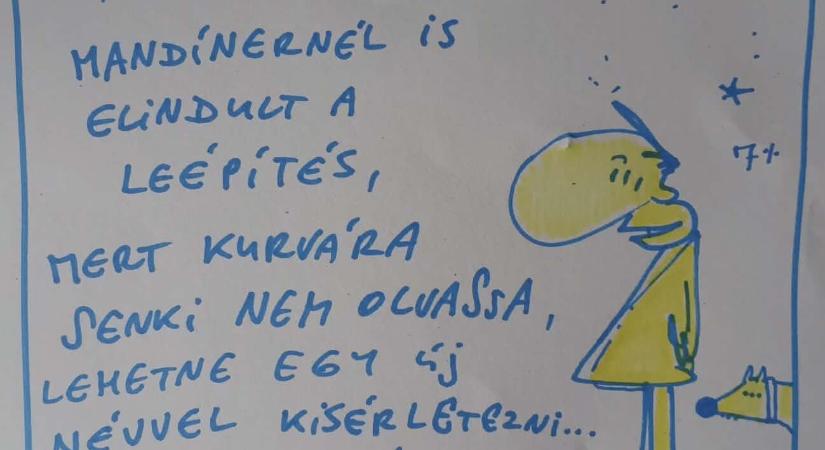 MANDÍNERNÉL IS
ELINDULT A
LEÉPÍTÉS,
MERT KURVÁRA
SENKI NEM OLVASSA,
LEHETNE EGY ÚJ
NÉVVEL KISÉRLETEZNI...
7%